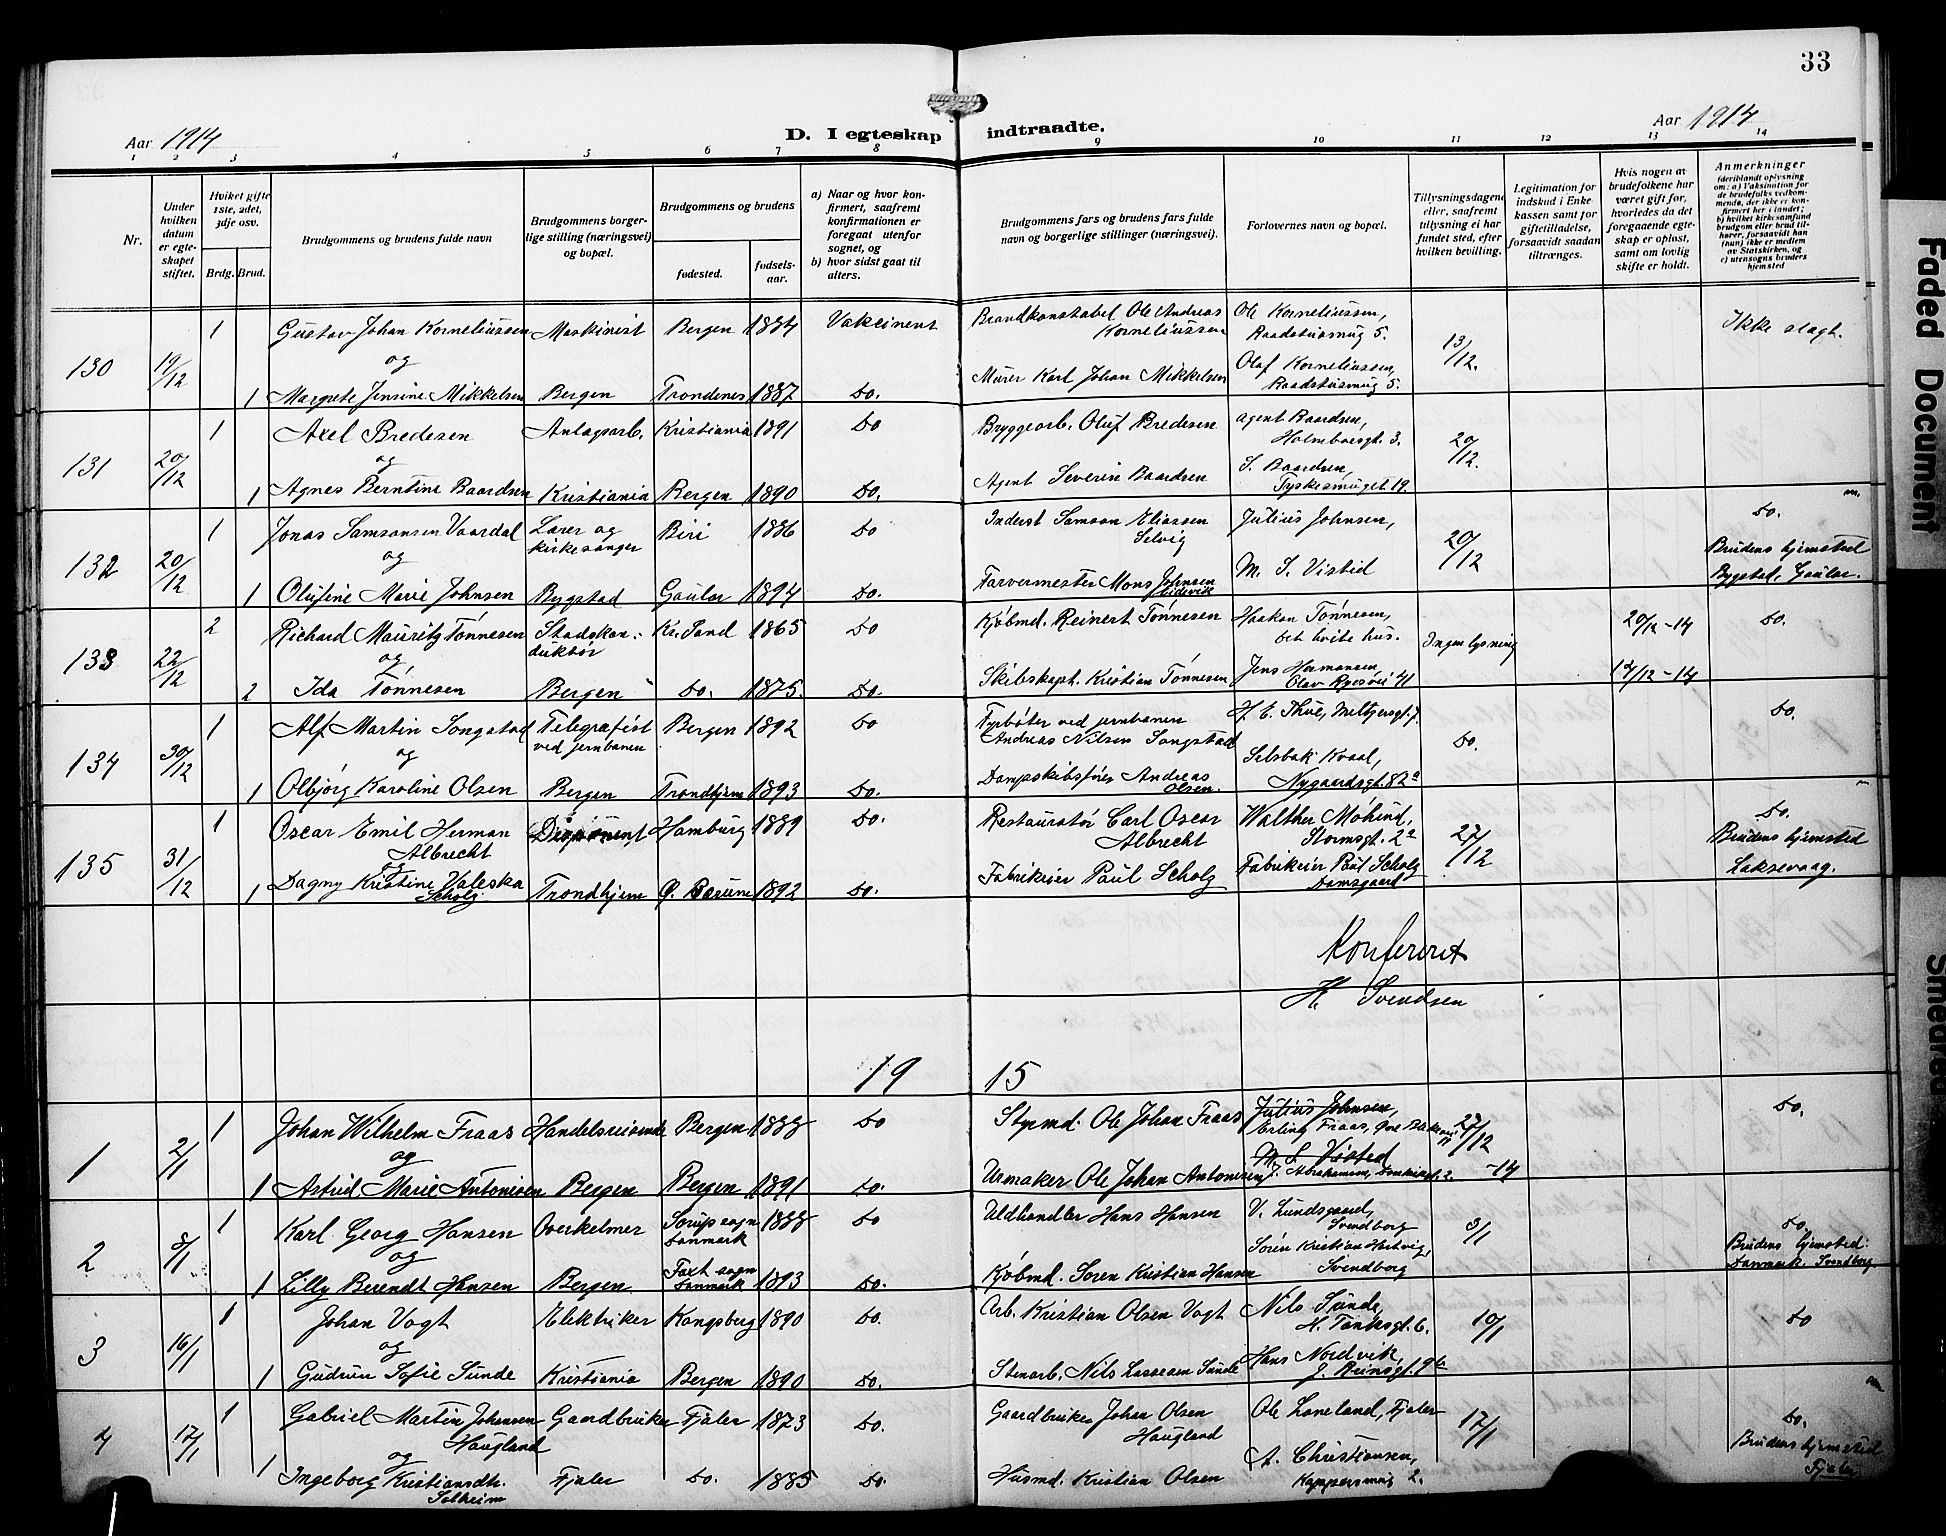 33
Aar 1914
D. I egteskap indtraadte.
Aar 1914
1 2 3 4 5 6 7 8 9 10 11 12 13 14
Nr.
Under hvilken datum er egteskapet stiftet.
Hvilket gifte 1ste, 2det, 3dje osv.
Brdg. Brud.
Brudgommens og brudens fulde navn
Brudgommens borgerlige stilling (næringsvei) og bopæl.
Brudgommens og brudens
fødested.
fødselsaar.
a) Naar og hvor konfirmert, saafremt konfirmationen er foregaat utenfor sognet, og
b) hvor sidst gaat til alters.
Brudgommens fars og brudens fars fulde navn og borgerlige stillinger (næringsvei).
Forlovernes navn og bopæl.
Tillysningsdagene eller, saafremt tillysning ei har fundet sted, efter hvilken bevilling.
Legitimation for indskud i Enkekassen samt for giftetilladelse, forsaavidt saadan tiltrænges.
Hvis nogen av brudefolkene har været gift før, hvorledes da det foregaaende egteskap er opløst, samt om lovlig skifte er holdt.
Anmerkninger
(deriblandt oplysning om: a) Vaksination for de brudefolks vedkommende, der ikke er konfirmert her i landet; b) hvilket kirkesamfund brudgom eller brud tilhører, forsaavidt han (hun) ikke er medlem av Statskirken, og c) utensogns bruders hjemsted
130 19/12 1 Gustav Johan Korneliussen Maskinist Bergen 1884 Vakcinert Brandkonstabel Ole Andreas Korneliussen Ole Korneliussen, Raadstusmug 5. 13/12. Ikke slagt.
og
1 Margrete Jensine Mikkelsen Bergen Trondenes 1887 Do. Murer Karl Johan Mikkelsen Olaf Korneliussen, Raadstusmug 5.
131 20/12 1 Axel Bredesen Anlagsarb. Kristiania 1891 Do Bryggearb. Oluf Bredesen Agent Baardsen, Holmboesgt. 3. 20/12.
og
1 Agnes Berntine Baardsen Kristiania Bergen 1890 Do. Agent Severin Baardsen S. Baardsen, Tyskesmuget 19.
132 20/12 1 Jonas Samsonsen Vaardal Lærer og kirkesanger Biri 1886 Do Inderst Samson Eliassen Selvig Julius Johnsen, 20/12 Do.
og
1 Olufine Marie Johnsen Bygstad Gaular 1894 Do. Farvermester Mons Johnsen M. S. Visted Brudens hjemsted Bygstad, Gaular.
133 22/12 2 Richard Mauritz Tønnesen Stadskonduktør Kr. Sand 1865 Do Kjøbmd. Reinert Tønnesen Haakon Tønnesen, Det hvite hus. Ingen lysning 20/12-14 Do.
og
2 Ida Tønnesen Bergen Do. 1875. Do. Skibskapt. Kristian Tønnesen Jens Hermansen, Olav Ryesvei 41 12/12-14
134 30/12 1 Alf Martin Songstad Telegrafist ved jernbanen Bergen 1892 Do Fyrbøter ved jernbanen Andreas Nilsen Songstad H. E. Thue, Meltzersgt. 7. Do. Do.
og
1 Olbjørg Karoline Olsen Bergen Trondhjem 1893 Do. Dampskibsfører Andreas Olsen. Selsbak Kvaal, Nygaardsgt. 82a
135 31/12 1 Oscar Emil Herman Albrecht Disponent Hamburg 1889 Do. Restauratør Carl Oscar Albrecht Walther Mohind, Stormsgt. 2a 27/12 Do. Brudens hjemsted Laksevaag.
og
1 Dagny Kristine Valeska Scholz Trondhjem Ø. Bærum 1892 Do. Fabrikeier Paul Scholz Fabrikeier Paul Scholz Damsgaard
Konfereret
H. Svendsen
19 15
1 2/1 1 Johan Wilhelm Fraas Handelsreisende Bergen 1888 Do Styrmd. Ole Johan Fraas Julius Johnsen, Erling Fraas, 27/12-14 Do.
og
1 Astrid Marie Antonisen Bergen Bergen 1891 Do. Urmaker Ole Johan Antonisen M. S. Visted J. Abrahamsen, 2.
2 8/1 1 Karl Georg Hansen Overkelner Sørup sogn Danmark 1888 Do Uldhandler Hans Hansen V. Lundsgaard, Svendborg 3/1 Do.
og
1 Lilly Berendt Hansen Bergen. Faxt sogn Danmark 1893 Do. Kjøbmd. Soren Kristian Hansen Sørén Kristian Hartvig, Svendborg Brudens hjemsted: Danmark. Svendborg
3 16/1 1 Johan Vogt Elektriker Kongsberg 1890 Do. Arb. Kristian Olsen Vogt Nils Sunde, H. Tanksgt. 6. 10/1 Do
og
1 Gudrun Sofie Sunde Kristiania Bergen 1890 Do. Stenarb. Nils Lassesen Sunde Hans Nordvik, J. Reinsgt. 9b
4 17/1 1 Gabriel Martin Johansen Haugland Gaardbruker Fjaler 1873 Do. Gaardbruker Johan Olsen Haugland Ole Laneland, Fjaler 17/1 Do.
og
1 Ingeborg Kristiansdtr. Solheim Fjaler Do. 1885 Do Husmd. Kristian Olsen A. Christiansen, Kappersmug 2. Brudens hjemsted Fjaler
Faded Document
Smeared